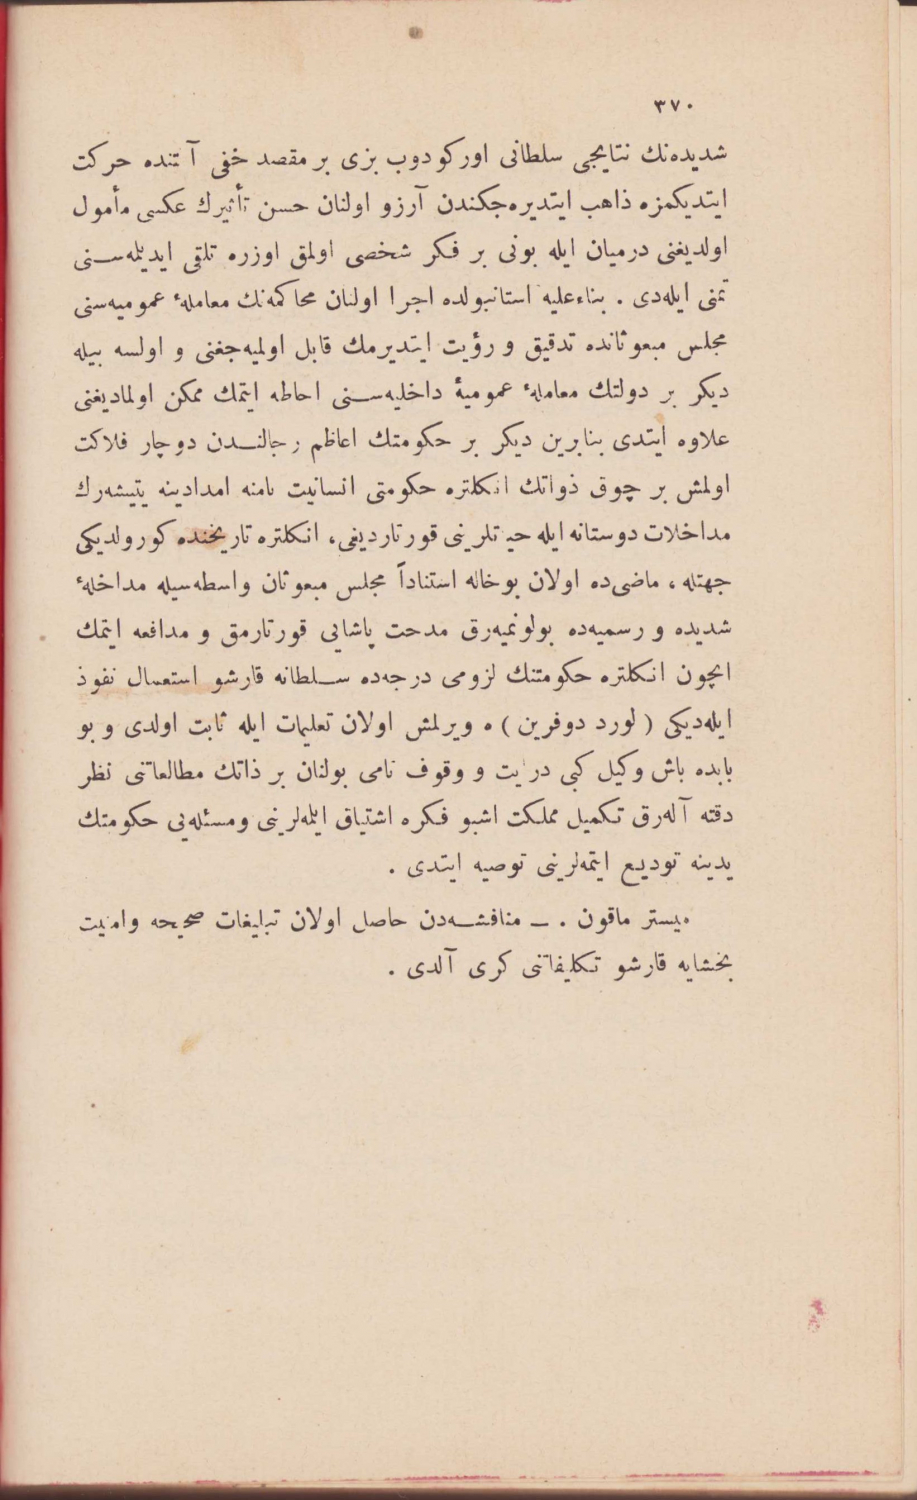 ٣٧٠
شديده‌نك نتايجى سلطانى اوركودوب بزى بر مقصد خفى آ تنده حركت
ايتديكمزه ذاهب ايتديره‌جكندن آرزو اولنان حسن تأثيرك عكسى مأمول
اولديغنى درميان ايله بونى بر فكر شخصى اولمق اوزره تلقى ايديلمه‌سنى
تمنى ايله‌دى . بناءعليه استانبولده اجرا اولنان محاكمه‌نك معاملهٔ عموميه‌سنى
مجلس مبعوثانده تدقيق و رؤيت ايتديرمك قابل اولميه‌جغنى و اولسه بيله
ديكر بر دولتك معاملهٔ عموميهٔ داخليه‌سنى احاطه ايتمك ممكن اولماديغنى
علاوه ايتدى بنابرين ديكر بر حكومتك اعاظم رجالندن دوچار فلاكت
اولمش بر چوق ذواتك انكلتره حكومتى انسانيت نامنه امدادينه يتيشه‌رك
مداخلات دوستانه ايله حياتلرينى قورتارديغى، انكلتره تاريخنده كورولديكى
جهتله ، ماضى‌ده اولان بوحاله استناداً مجلس مبعوثان واسطه‌سيله مداخلهٔ
شديده و رسميه‌ده بولونميه‌رق مدحت پاشايى قورتارمق و مدافعه ايتمك
ايچون انكلتره حكومتنك لزومى درجه‌ده سلطانه قارشو استعمال نفوذ
ايله‌ديكى ( لورد دوفرين ) ه ويرلمش اولان تعليمات ايله ثابت اولدى و بو
بابده باش وكيل كبى درايت و وقوف تامى بولنان بر ذاتك مطالعاتنى نظر
دقته آله‌رق تكميل مملكت اشبو فكره اشتياق ايتمه‌لرينى ومسئله‌يى حكومتك
يدينه توديع ايتمه‌لرينى توصيه ايتدى .
ميستر ماقون . — مناقشه‌دن حاصل اولان تبليغات صحيحه وامنيت
بخشايه قارشو تكليفاتنى كرى آلدى .